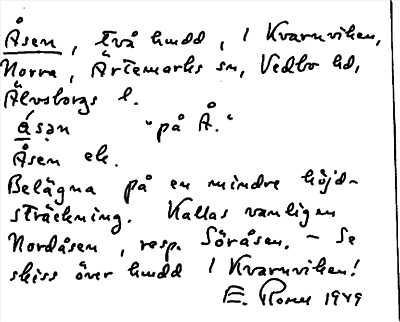 Åsen, två hmdd, i Kvarnviken,
Norra, Ärtemarks sn, Vedbo hd,
Älvsborgs l.
ǻsən "på Å."
Åsen ek.
Belägna på en mindre höjd-
sträckning. Kallas vanligen
Nordåsen, resp. Söråsen. – Se
skiss över hmdd i Kvarnviken!
E. 1949